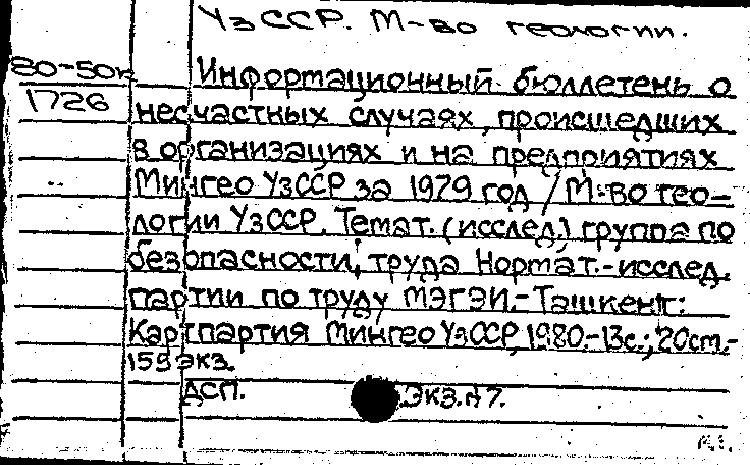 УзССР. М-во геологии.
80-50к Информационный бюллетень о
1726 несчастных случаях, происшедших
в организациях и на предприятиях
Мингео УзССР за 1979 год / М-во гео-
логии УзССР. Темат. (исслед.) группа по
безопасности, труда Нормат.-исслед.
партии по труду МЭГЭИ.- Ташкент:
Картпартия Мингео УзССР, 1980.-13с.; 20см.-
159 экз.
ДСП. Экз.№7.